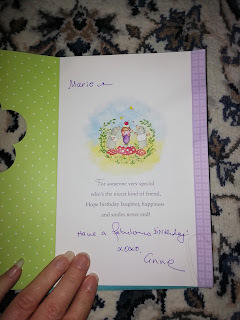 Marie
For someone very special
who's the nicest kind of friend,
Hope birthday laughter, happiness
and smiles never end!
Have a fabulous birthday!
xoxo
Anne